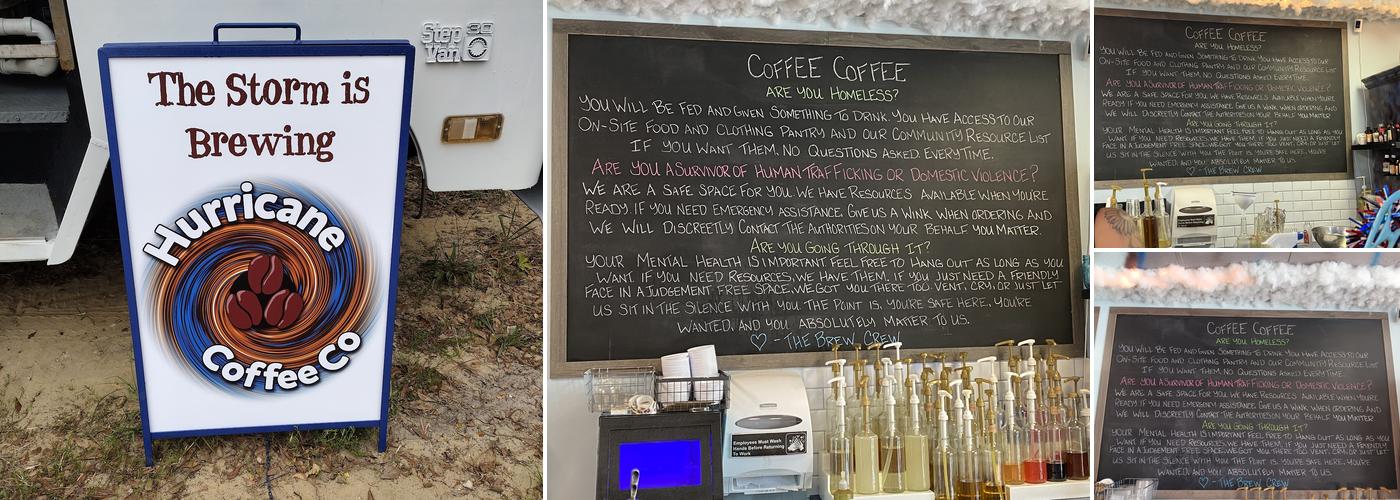 The Storm is
Brewing
Hurricane
Coffee Co
Step
Van 30
COFFEE COFFEE
ARE YOU HOMELESS?
YOU WILL BE FED AND GIVEN SOMETHING TO DRINK. YOU HAVE ACCESS TO OUR
ON-SITE FOOD AND CLOTHING PANTRY AND OUR COMMUNITY RESOURCE LIST
IF YOU WANT THEM, NO QUESTIONS ASKED. EVERYTIME.
ARE YOU A SURVIVOR OF HUMAN TRAFFICKING OR DOMESTIC VIOLENCE?
WE ARE A SAFE SPACE FOR YOU. WE HAVE RESOURCES AVAILABLE WHEN YOU'RE
READY. IF YOU NEED EMERGENCY ASSISTANCE. GIVE US A WINK WHEN ORDERING AND
WE WILL DISCREETLY CONTACT THE AUTHORITIES ON YOUR BEHALF. YOU MATTER.
ARE YOU GOING THROUGH IT?
YOUR MENTAL HEALTH IS IMPORTANT FEEL FREE TO HANG OUT AS LONG AS YOU
WANT. IF YOU NEED RESOURCES, WE HAVE THEM. IF YOU JUST NEED A FRIENDLY
FACE IN A JUDGEMENT FREE SPACE, WE GOT YOU THERE TOO. VENT, CRY, OR JUST LET
US SIT IN THE SILENCE WITH YOU. THE POINT IS, YOU'RE SAFE HERE, YOU'RE
WANTED, AND YOU ABSOLUTELY MATTER TO US.
♡ - THE BREW CREW
Employees Must Wash
Hands Before Returning
To Work
COFFEE COFFEE
ARE YOU HOMELESS?
YOU WILL BE FED AND GIVEN SOMETHING TO DRINK. YOU HAVE ACCESS TO OUR
ON-SITE FOOD AND CLOTHING PANTRY AND OUR COMMUNITY RESOURCE LIST
IF YOU WANT THEM, NO QUESTIONS ASKED. EVERYTIME.
ARE YOU A SURVIVOR OF HUMAN TRAFFICKING OR DOMESTIC VIOLENCE?
WE ARE A SAFE SPACE FOR YOU. WE HAVE RESOURCES AVAILABLE WHEN YOU'RE
READY. IF YOU NEED EMERGENCY ASSISTANCE. GIVE US A WINK WHEN ORDERING AND
WE WILL DISCREETLY CONTACT THE AUTHORITIES ON YOUR BEHALF. YOU MATTER
ARE YOU GOING THROUGH IT?
YOUR MENTAL HEALTH IS IMPORTANT FEEL FREE TO HANG OUT AS LONG AS YOU
WANT. IF YOU NEED RESOURCES, WE HAVE THEM. IF YOU JUST NEED A FRIENDLY
FACE IN A JUDGEMENT FREE SPACE, WE GOT YOU THERE TOO. VENT, CRY, OR JUST LET
US SIT IN THE SILENCE WITH YOU. THE POINT IS, YOU'RE SAFE HERE, YOU'RE
WANTED, AND YOU ABSOLUTELY MATTER TO US.
♡ - THE BREW CREW
COFFEE COFFEE
ARE YOU HOMELESS?
YOU WILL BE FED AND GIVEN SOMETHING TO DRINK. YOU HAVE ACCESS TO OUR
ON-SITE FOOD AND CLOTHING PANTRY AND OUR COMMUNITY RESOURCE LIST
IF YOU WANT THEM, NO QUESTIONS ASKED. EVERYTIME.
ARE YOU A SURVIVOR OF HUMAN TRAFFICKING OR DOMESTIC VIOLENCE?
WE ARE A SAFE SPACE FOR YOU. WE HAVE RESOURCES AVAILABLE WHEN YOU'RE
READY. IF YOU NEED EMERGENCY ASSISTANCE. GIVE US A WINK WHEN ORDERING AND
WE WILL DISCREETLY CONTACT THE AUTHORITIES ON YOUR BEHALF. YOU MATTER.
ARE YOU GOING THROUGH IT?
YOUR MENTAL HEALTH IS IMPORTANT FEEL FREE TO HANG OUT AS LONG AS YOU
WANT. IF YOU NEED RESOURCES, WE HAVE THEM. IF YOU JUST NEED A FRIENDLY
FACE IN A JUDGEMENT FREE SPACE, WE GOT YOU THERE TOO. VENT, CRY, OR JUST LET
US SIT IN THE SILENCE WITH YOU. THE POINT IS, YOU'RE SAFE HERE, YOU'RE
WANTED, AND YOU ABSOLUTELY MATTER TO US.
♡ - THE BREW CREW